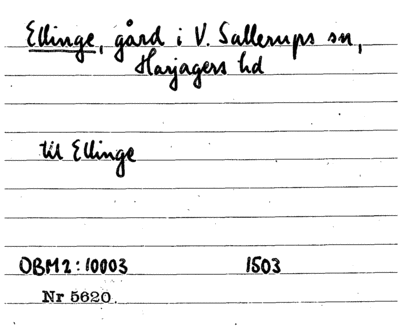 Ellinge, gård i V. Sallerups sn,
Harjagers hd
til Ellinge
OBM2:10003 1503
Nr 5620.